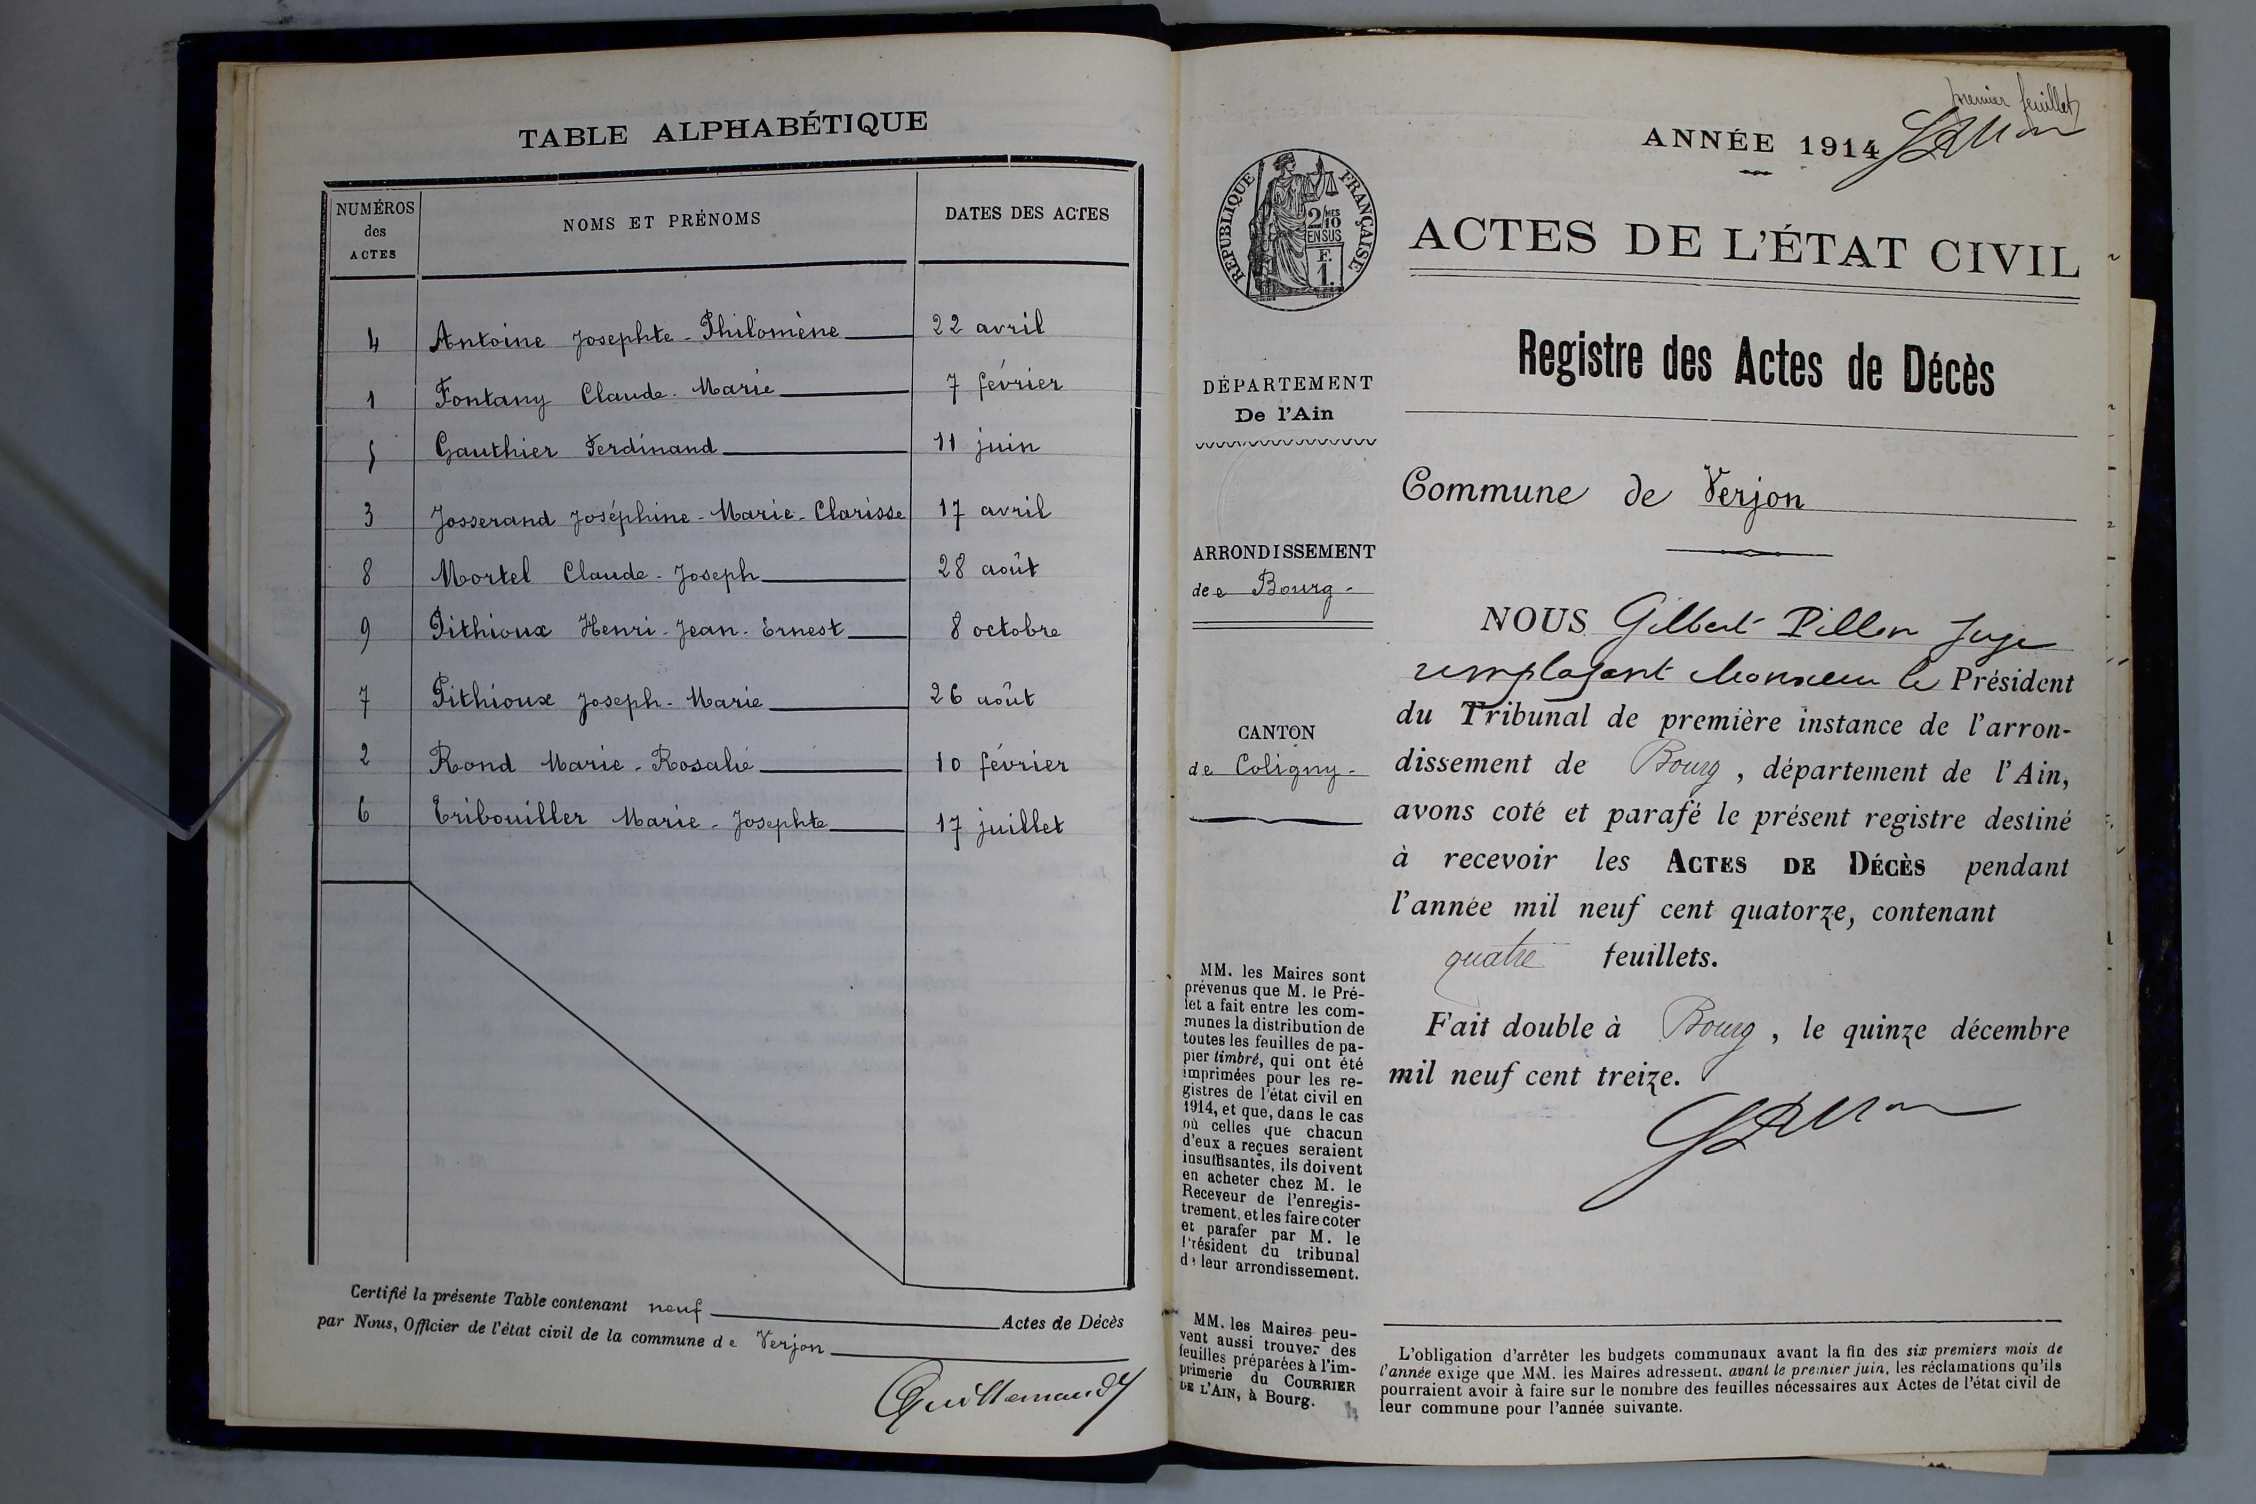 TABLE ALPHABÉTIQUE
NUMÉROS des ACTES
NOMS ET PRÉNOMS
DATES DES ACTES
4 Antoine Josephte - Philomène 22 avril
1 Fontany Claude - Marie 7 février
5 Gauthier Ferdinand 11 juin
3 Josserand Joséphine - Marie - Clarisse 17 avril
8 Mortel Claude - Joseph 28 août
9 Pithioux Henri - Jean - Ernest 8 octobre
7 Pithioux Joseph - Marie 26 août
2 Rond Marie - Rosalie 10 février
6 Tribouiller Marie - Josephte 17 juillet
Certifié la présente Table contenant neuf Actes de Décès
par Nous, Officier de l'état civil de la commune de Verjon
premier feuillet
ANNÉE 1914
RÉPUBLIQUE FRANÇAISE
2/10 MES
EN SUS
F.
1.
ACTES DE L'ÉTAT CIVIL
Registre des Actes de Décès
DÉPARTEMENT
De l'Ain
Commune de Verjon
ARRONDISSEMENT
de Bourg -
CANTON
de Coligny -
NOUS Gilbert Pillon Juge
remplaçant Monsieur le Président
du Tribunal de première instance de l'arron-
dissement de Bourg, département de l'Ain,
avons coté et parafé le présent registre destiné
à recevoir les ACTES DE DÉCÈS pendant
l'année mil neuf cent quatorze, contenant
quatre feuillets.
Fait double à Bourg, le quinze décembre
mil neuf cent treize.
MM. les Maires sont
prévenus que M. le Pré-
fet a fait entre les com-
munes la distribution de
toutes les feuilles de pa-
pier timbré, qui ont été
imprimées pour les re-
gistres de l'état civil en
1914, et que, dans le cas
où celles que chacun
d'eux a reçues seraient
insuffisantes, ils doivent
en acheter chez M. le
Receveur de l'enregis-
trement, et les faire coter
et parafer par M. le
Président du tribunal
de leur arrondissement.
MM. les Maires peu-
vent aussi trouver des
feuilles préparées à l'im-
primerie du COURRIER
DE L'AIN, à Bourg.
L'obligation d'arrêter les budgets communaux avant la fin des six premiers mois de
l'année exige que MM. les Maires adressent, avant le premier juin, les réclamations qu'ils
pourraient avoir à faire sur le nombre des feuilles nécessaires aux Actes de l'état civil de
leur commune pour l'année suivante.